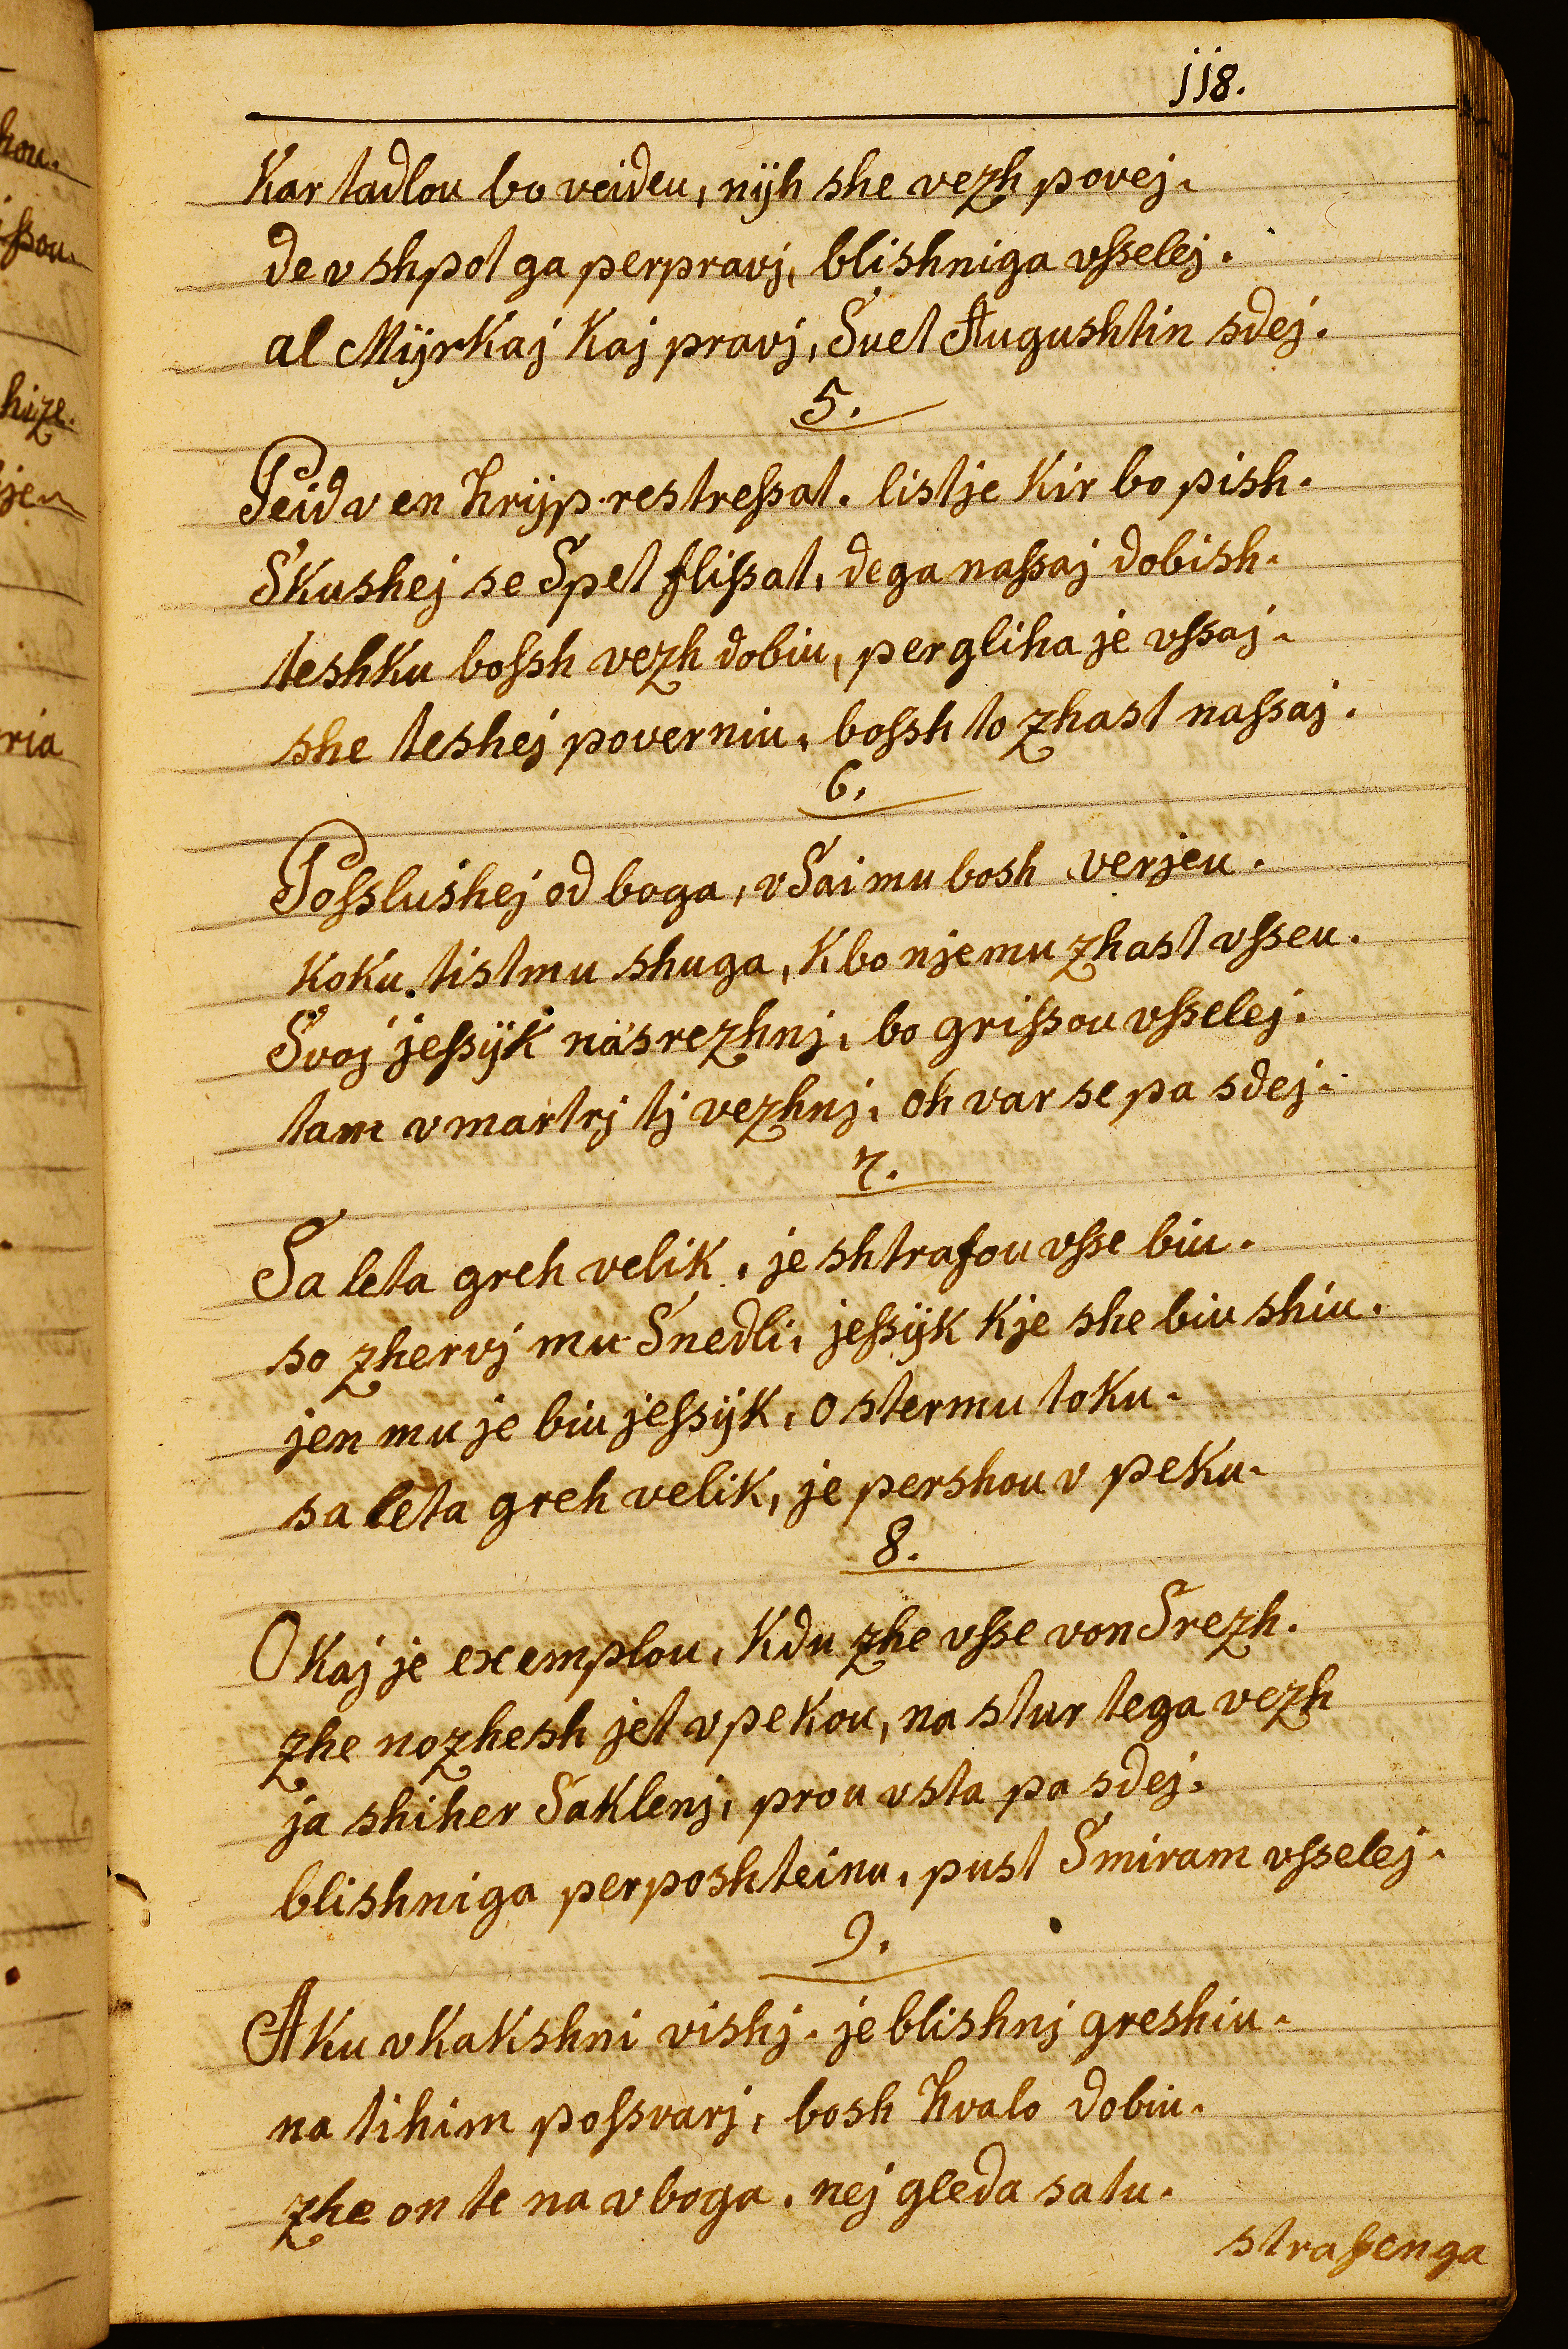 jj8.
Kar tadlou bo veideu, nÿh she vezh povej.
de v shpot ga perpravj, blishniga vſselej.
al MÿrKaj Kaj pravj, Suet Augushtin sdej.
5.
Peid v en hrÿp restreſsat. listje Kir bo pish.
SKushej se Spet fliſsat, de ga naſsaj dobish.
teshKu boſsh vezh dobiu, pergliha je vſsaj.
she teshej poverniu, boſsh to zhast naſsaj.
6.
Poſslushej od boga, vSai mu bosh verjeu.
KoKu tistmu shuga, K bo njemu zhast vſseu.
Svoj jeſsÿK näsrezhnj, bo griſsou vſselej.
tam v martrj tj vezhnj, oh var se pa sdej.
7.
Sa leta greh veliK, je shtrafou vſse biu.
so zhervj mu Snedli, jeſsÿK Kje she biu shiu.
jen mu je biu jeſsÿK, ostermu toKu.
sa leta greh veliK, je pershou v peKu.
8.
O Kaj je exemplou, Kdu zhe vſse von Srezh.
zhe nozhesh jet v peKou, na stur tega vezh
ja shiher SaKlenj, prou vsta pa sdej.
blishniga perposhteinu, pust Smiram vſselej.
9.
AKu vKaKshni vishj. je blishnj greshiu.
na tihim poſsvarj, bosh hvalo dobiu.
zhe on te na vboga, nej gleda satu.
strafenga